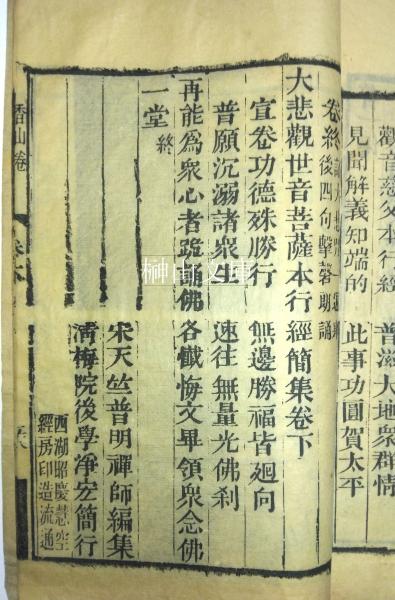 觀音慈父本行經　普滋大地眾群情
見聞解義知端的　此事功圓賀太平
卷終
後四句擊磬朗誦
大悲觀世音菩薩本行經簡集卷下
宣卷功德殊勝行　無邊勝福皆迴向
普願沉溺諸眾生　速往無量光佛刹
再能為眾心者諷誦佛各懺悔文畢領眾念佛
一堂終
宋天竺普明禪師編集
清梅院後學淨宏簡行
西湖昭慶慧空
經房印造流通
香山卷
榊山文庫